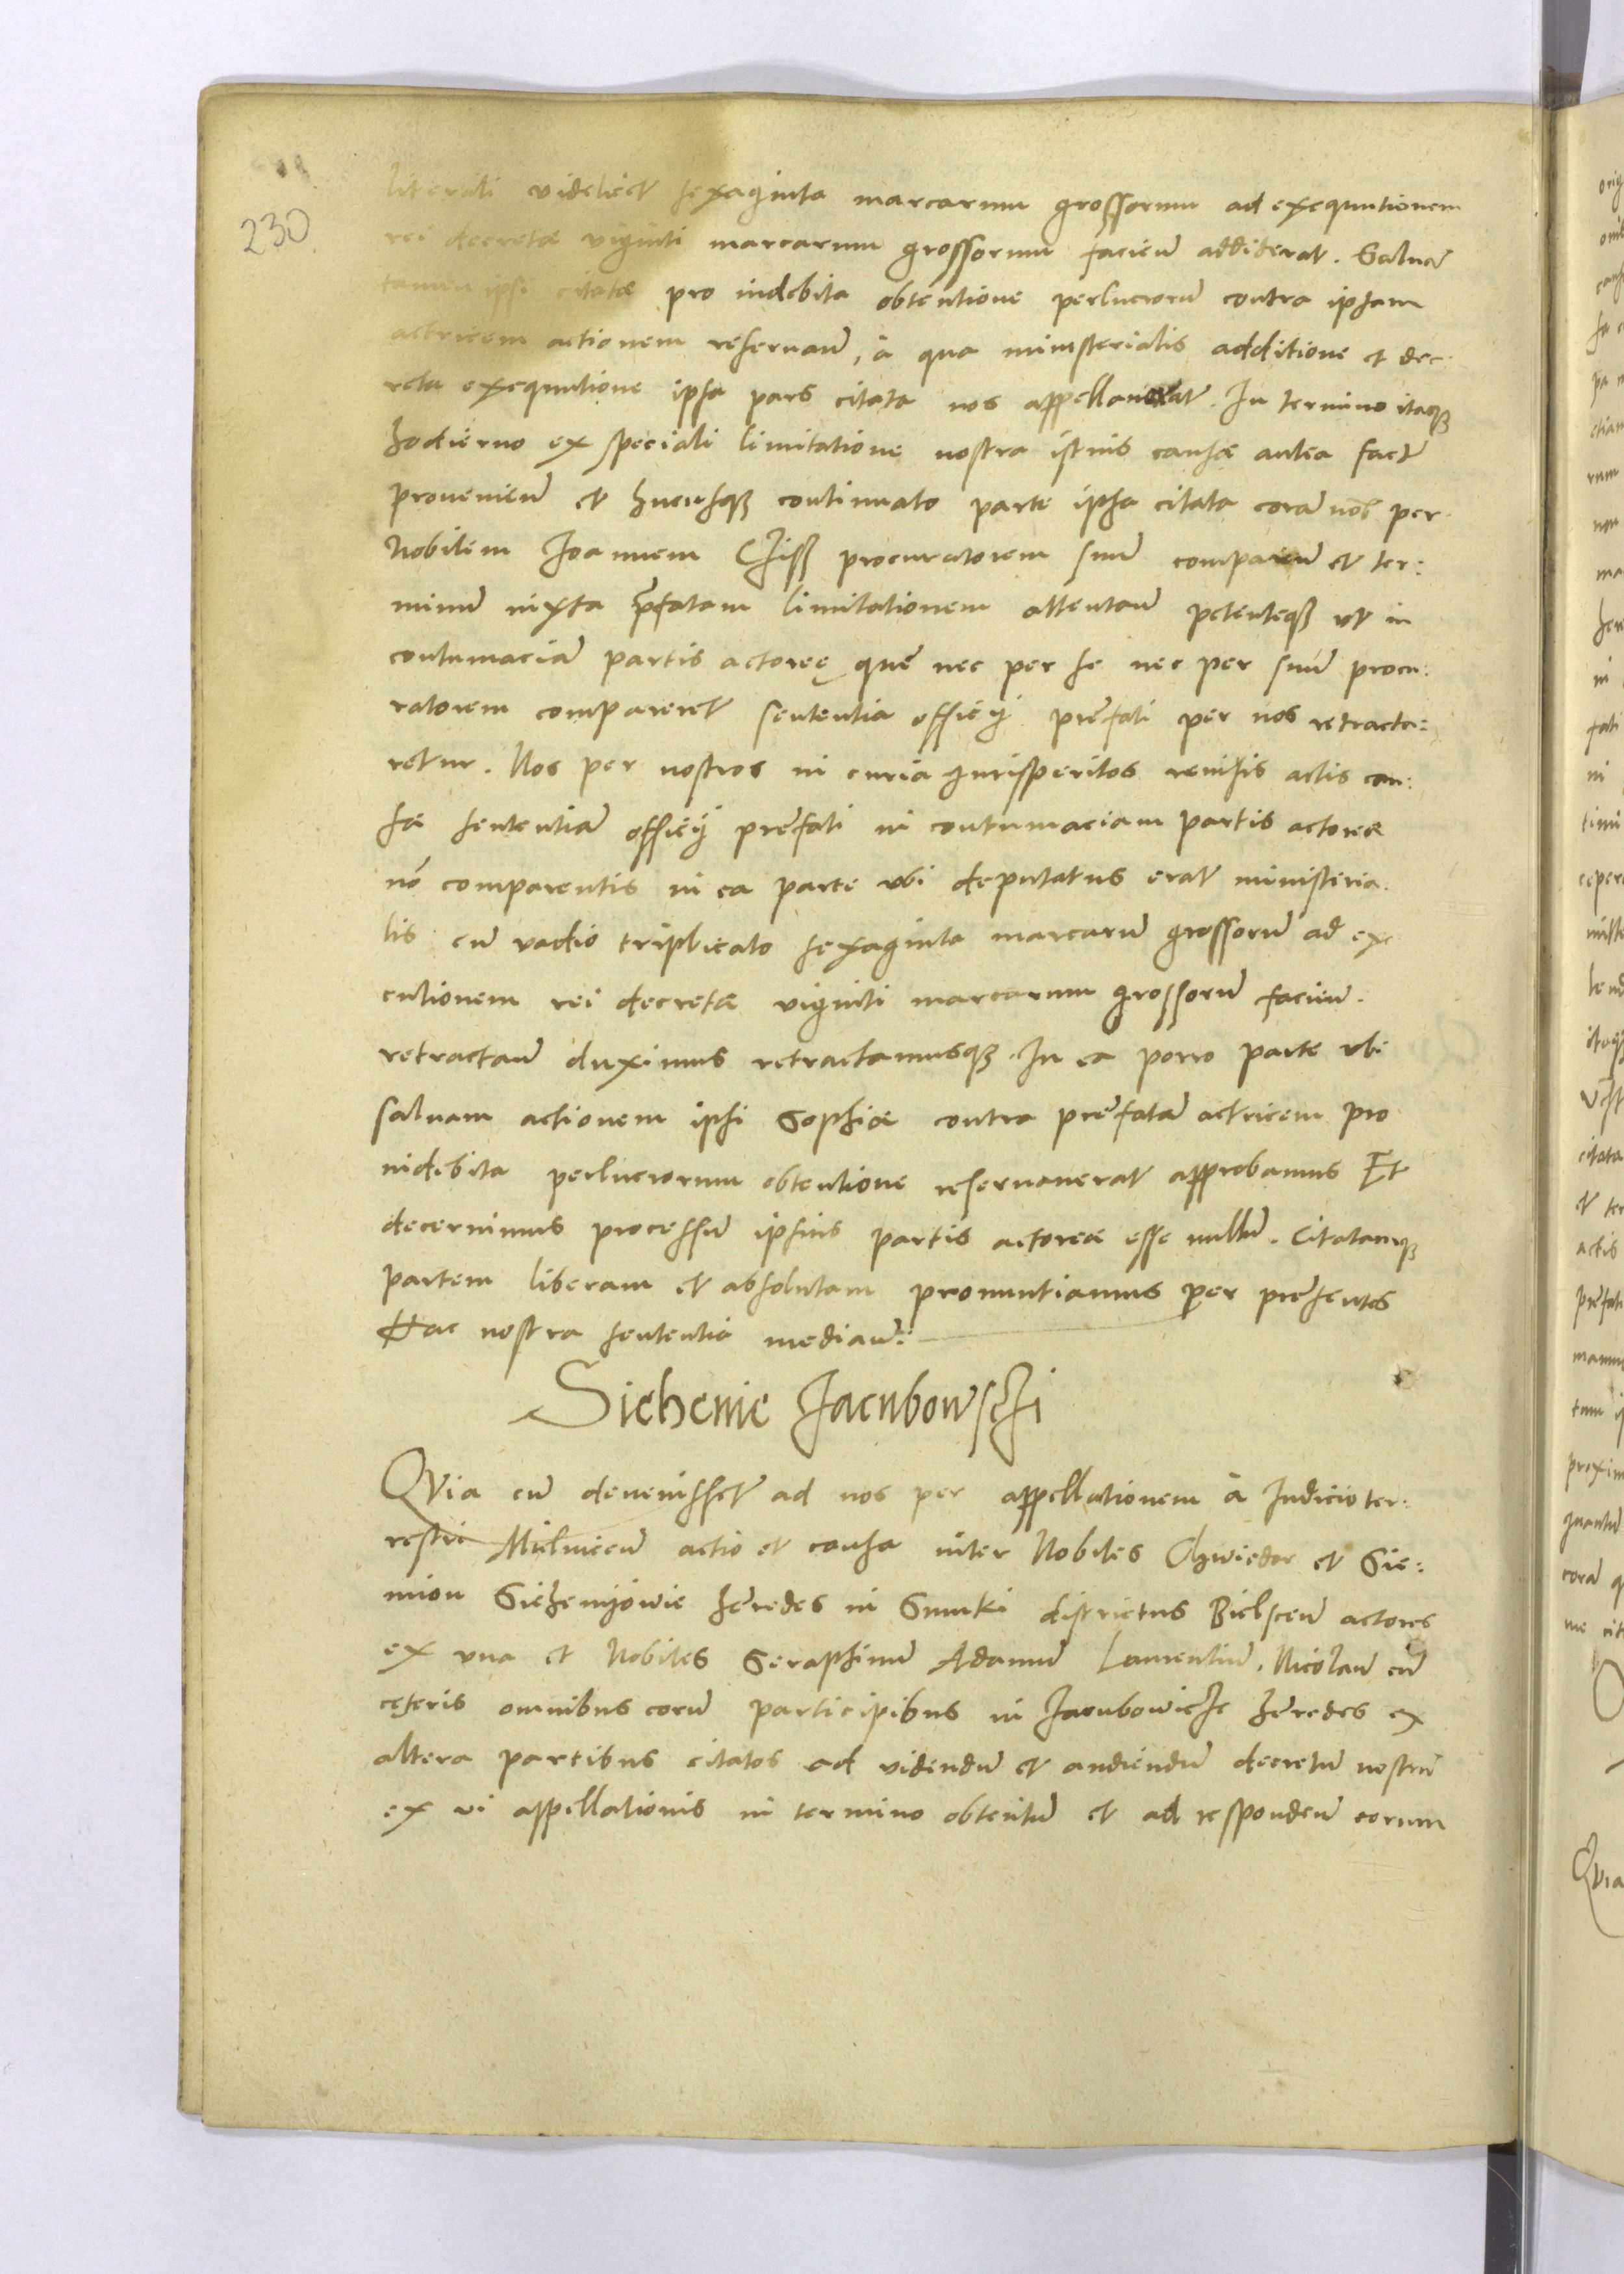 230
literali videlicet sexaginta marcarum grossorum ad exequutionem
rei decretæ viginti marcarum grossorum faciend̄ addiderat. Saluā
tamen ipsi citatæ pro indebita obtentione perlucrorū contra ipsam
actricem actionem reseruand̄, à qua ministerialis additione et dec
reta exequutione ipsa pars citata nos appellauerat. In termino itaqȝ
hodierno ex speciali limitatione nostra istius causæ antea fact̄
proueniend̄ et hucusqȝ continuato parte ipsa citata corā nob̄ per
Nobilem Joannem procuratorem suū comparen̄ et ter:
minū iuxta p̄fatam limitationem attentan̄ petenteqȝ vt in
contumaciā partis actoreę quē nec per se nec per suū procu:
ratorem compareret sententia officij prēfati per nos retracta:
retur. Nos per nostros in curia Jurisperitos reuisis actis cau:
sæ sententiā officij prēfati in contumaciam partis actoreæ
nō comparentis in ea parte vbi deputatus erat ministeria:
lis cū vadio triplicato sexaginta marcarū grossorū ad exe
cutionem rei decretæ viginti marcarum grossorū faciend̄.
retractand̄ duximus retractamusqȝ. In ea porro parte vbi
saluam actionem ipsi Sophiæ contra prēfatā actricem pro
indebita perlucrorum obtentione reseruauerat approbamus Et
decernimus processū ipsius partis actoreæ esse nullū. Citatamqȝ
partem liberam et absolutam pronuntiamus per prēsentes
Hac nostra sententia median̄:
Siehenie Jacubowschi
QVia cū deuenisset ad nos per appellationem à Judicio ter:
restri Mielnicen̄ actio et causa inter Nobiles Chwiedor et Sie:
mion hēredes in districtus Bielscen̄ actores
ex vna et Nobiles Seraphinū Adamū Laurentiū, Nicolaū cū
cęteris omnibus eorū participibus in Jacubowicze hēredes ex
altera partibus citatos ad videndū et audiendū decretū nostrū
ex vi appellationis in termino obtentū et ad respondend̄ eorum